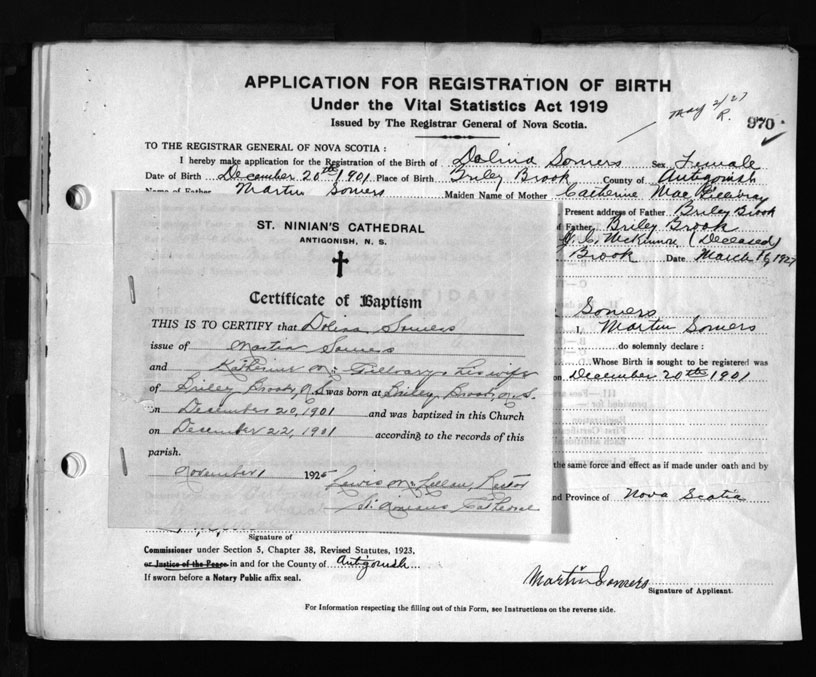 APPLICATION FOR REGISTRATION OF BIRTH
Under the Vital Statistics Act 1919
Issued by The Registrar General of Nova Scotia.
May 2/27
R.
970
TO THE REGISTRAR GENERAL OF NOVA SCOTIA :
I hereby make application for the Registration of the Birth of Dolina Somers Sex Female
Date of Birth December 20th 1901 Place of Birth Briley Brook County of Antigonish
Name of Father Martin Somers Maiden Name of Mother Catherine Mac
Present address of Father Briley Brook
Father Briley Brook
McKinnon (Deceased)
Brook Date March 16, 1927
Somers
I, Martin Somers
do solemnly declare :
Whose Birth is sought to be registered was
on December 20th 1901
the same force and effect as if made under oath and by
nd Province of Nova Scotia
ST. NINIAN'S CATHEDRAL
ANTIGONISH, N. S.
Certificate of Baptism
THIS IS TO CERTIFY that Dolina Somers
issue of Martin Somers
and Katherine McGillvary his wife
of Briley Brook, N.S. was born at Briley Brook, N.S.
on December 20, 1901 and was baptized in this Church
on December 22, 1901 according to the records of this
parish.
November 1 1925 Lewis McLellan, Rector
St. Ninians Cathedral
Signature of
Commissioner under Section 5, Chapter 38, Revised Statutes, 1923,
or Justice of the Peace in and for the County of Antigonish
If sworn before a Notary Public affix seal.
Martin Somers
Signature of Applicant.
For Information respecting the filling out of this Form, see Instructions on the reverse side.